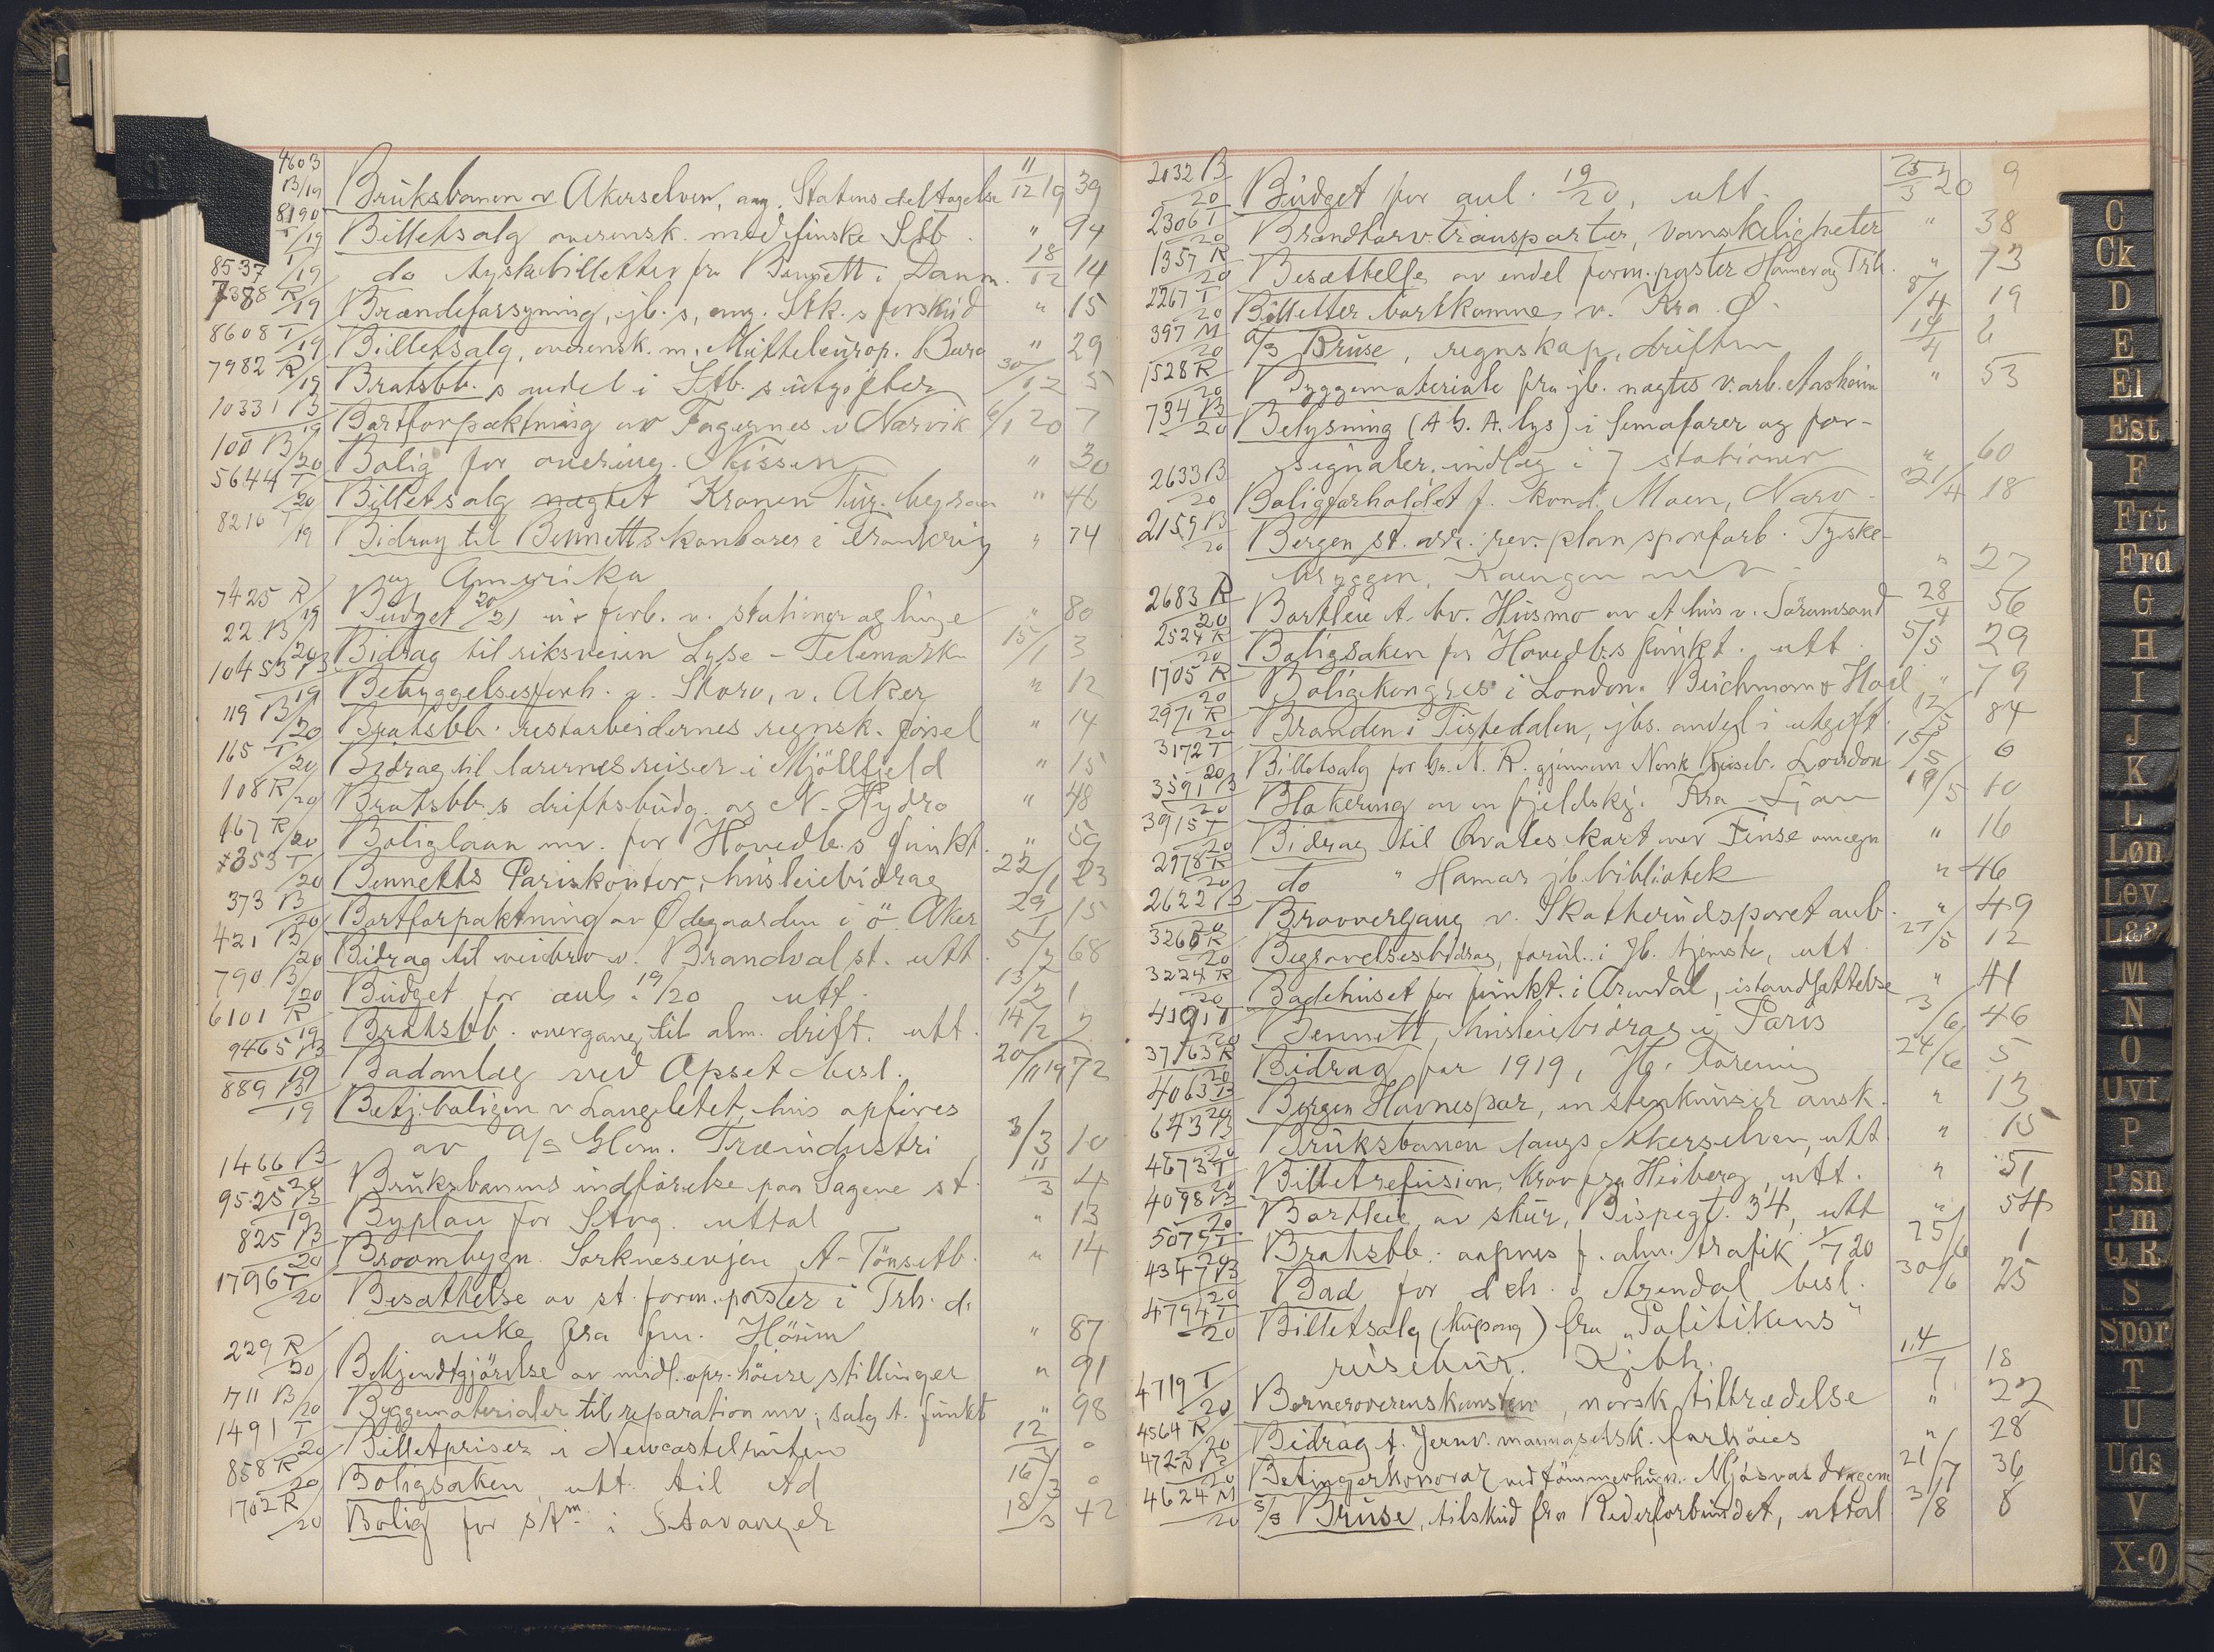 4603 B/19 Bruksbanen v Akerselven, ang. Statens deltagelse 11/12 19 39
8190 T/19 Billetsalg overensk. med finske Stb. " 94
8537 T/19 do tyske billetter fra Bennett i Danm. 18/12 14
7388 R/19 Brændeforsyning, jb. s, ang. Stk. s forskud " 15
8608 T/19 Billetsalg, overensk. m. Mitteleurop. Buro " 29
7982 R/19 Bratsbb. s andel i Stb. s utgifter 30/12 5
10331 B/19 Bortforpaktning av Fagernes v Narvik 6/1 20 7
100 B/20 Bolig for overing. Nissen " 30
5644 T/20 Billetsalg nægtet Kronen Tur. byraa " 46
8216 T/19 Bidrag til Bennetts kontorer i Frankrig " 74
og Amerika
7425 R/19 Budget 20/21 ur forb. v. stationer og linje " 80
22 B/20 Bidrag til riksveien Lyse - Telemark 15/1 3
10453 B/19 Bebyggelsesforh. v. Storo, v. Aker " 12
119 B/20 Bratsbb. restarbeidernes regnsk. försel " 14
165 T/20 Bidrag til lærernes reiser i Mjöllfjeld " 15
108 R/20 Bratsbb. s driftsbudg. og N. Hydro " 48
467 R/20 Boliglaan mv. for Hovedb. s funkt. " 59
353 T/20 Bennetts Pariskontor, husleiebidrag 22/1 23
373 B/20 Bortforpaktning av Ødegaarden i ö. Aker 29/1 15
421 B/20 Bidrag til veibro v. Brandval st. utt. 5/2 68
790 B/20 Budget for anl. 19/20 utt. 13/2 1
6101 R/19 Bratsbb. overgang til alm. drift. utt. 14/2 7
9465 B/19 Badanlæg ved Opset besl. 20/11 19 72
889 B/19 Betj. boligen v Langeletet, hus opføres
av A/S Glom. Træindustri 3/3 10
1466 B/20 Bruksbanens indförelse paa Sagene st. 11/3 4
9525 B/19 Byplan for Stvg. uttal " 13
825 B/20 Broombygn. Sorknesevjen A-Tönsetb. " 14
1796 T/20 Besættelse av st. form. poster i Trh. d.
anke fra fm. Höium " 87
229 R/20 Bekjendtgjörelse av midl. opr. höiere stillinger " 91
711 B/20 Byggematerialer til reparation mv; salg t. funkt " 98
1491 T/20 Billetpriser i Newcastelruten 12/3 0
858 R/20 Boligsaken utt. til Ad 16/3 0
1702 R/20 Bolig for stm. i Stavanger 18/3 42
2032 B/20 Budget for anl. 19/20, utt. 25/3 20 9
2306 T/20 Brændtorvtransporter, vanskeligheter " 38
1357 R/20 Besættelse av endel form. poster Hamar og Trh. " 73
2267 T/20 Billetter bortkomne v. Kra. Ø. 8/4 19
397 M/20 a/s Bruse, regnskap, driften 14/4 6
1528 R/20 Byggemateriale fra jb. nægtes v. arb. Arnheim " 53
734 B/20 Belysning (A. G. A. lys) i Semaforer og for-
signaler, indlæg i 7 stationer " 60
2633 B/20 Boligforholdet f. kond. Moen, Narv. 21/4 18
2159 B/20 Bergen st. ark. rev. plan sporforb. Tyske-
bryggen, Kaiengen m v " 27
2683 R/20 Bortleie t. bv. Husmo av et hus v. Sörumsand 28/4 56
2524 R/20 Boligsaken for Hovedb.s funkt. utt. 5/5 29
1705 R/20 Boligkongres i London. Beichmann & Hoel " 79
2971 R/20 Branden i Tistedalen, jbs. andel i utgift. 12/5 84
3172 T/20 Billetsalg for Gr. N. R. gjennem Norsk Reiseb. London 15/5 6
3591 B/20 Blokering av en fjeldskj. Kra - Ljan 19/5 10
3915 T/20 Bidrag til Qvales kart over Finse omegn " 16
2978 R/20 do " Hamar jb. bibliotek " 46
2622 B/20 Broovergang v. Skatterudsporet anb. " 49
3268 R/20 Begravelsesbidrag, forul. i Jb. tjeneste, utt. 27/5 12
3224 R/20 Badehuset for funkt. i Arendal, istandsættelse " 41
4191 T/20 Bennett, husleiebidrag i Paris 3/6 46
3763 R/20 Bidrag for 1919, Jb. Forening 24/6 5
4063 B/20 Bergen Havnespor, en stenknuser ansk. " 13
643 B/20 Bruksbanen langs Akerselven, utt. " 15
4673 T/20 Billetrefusion, krav fra Heiberg, utt. " 51
4098 B/20 Bortleie av skur, Bispegt. 34, utt " 54
5079 T/20 Bratsbb. aapnes f. alm. trafik 1/7 20 25/6 1
4347 B/20 Bad for dch. i Arendal besl. 30/6 25
4794 T/20 Billetsalg (kupong) fra "Politikens"
reisebur. Kjbh. 14/7 18
4719 T/20 Berneroverenskomsten, norsk tiltrædelse " 22
4564 R/20 Bidrag t. Jernv. mannaselsk. forhöies " 28
4723 B/20 Betingerkonorar ved tömmerhugn. Mjösvasdragene 21/7 36
4624 M/20 S/S Bruse, tilskud fra Rederforbundet, uttal 3/8 8
C
Ck
D
E
El
Est
F
Frt
Fra
G
H
I
J
K
L
Løn
Lev.
Laa
M
N
O
Ovf
P
Psn
Pm
Q R
S
Spor
T
U
Uds
V
X-Ø